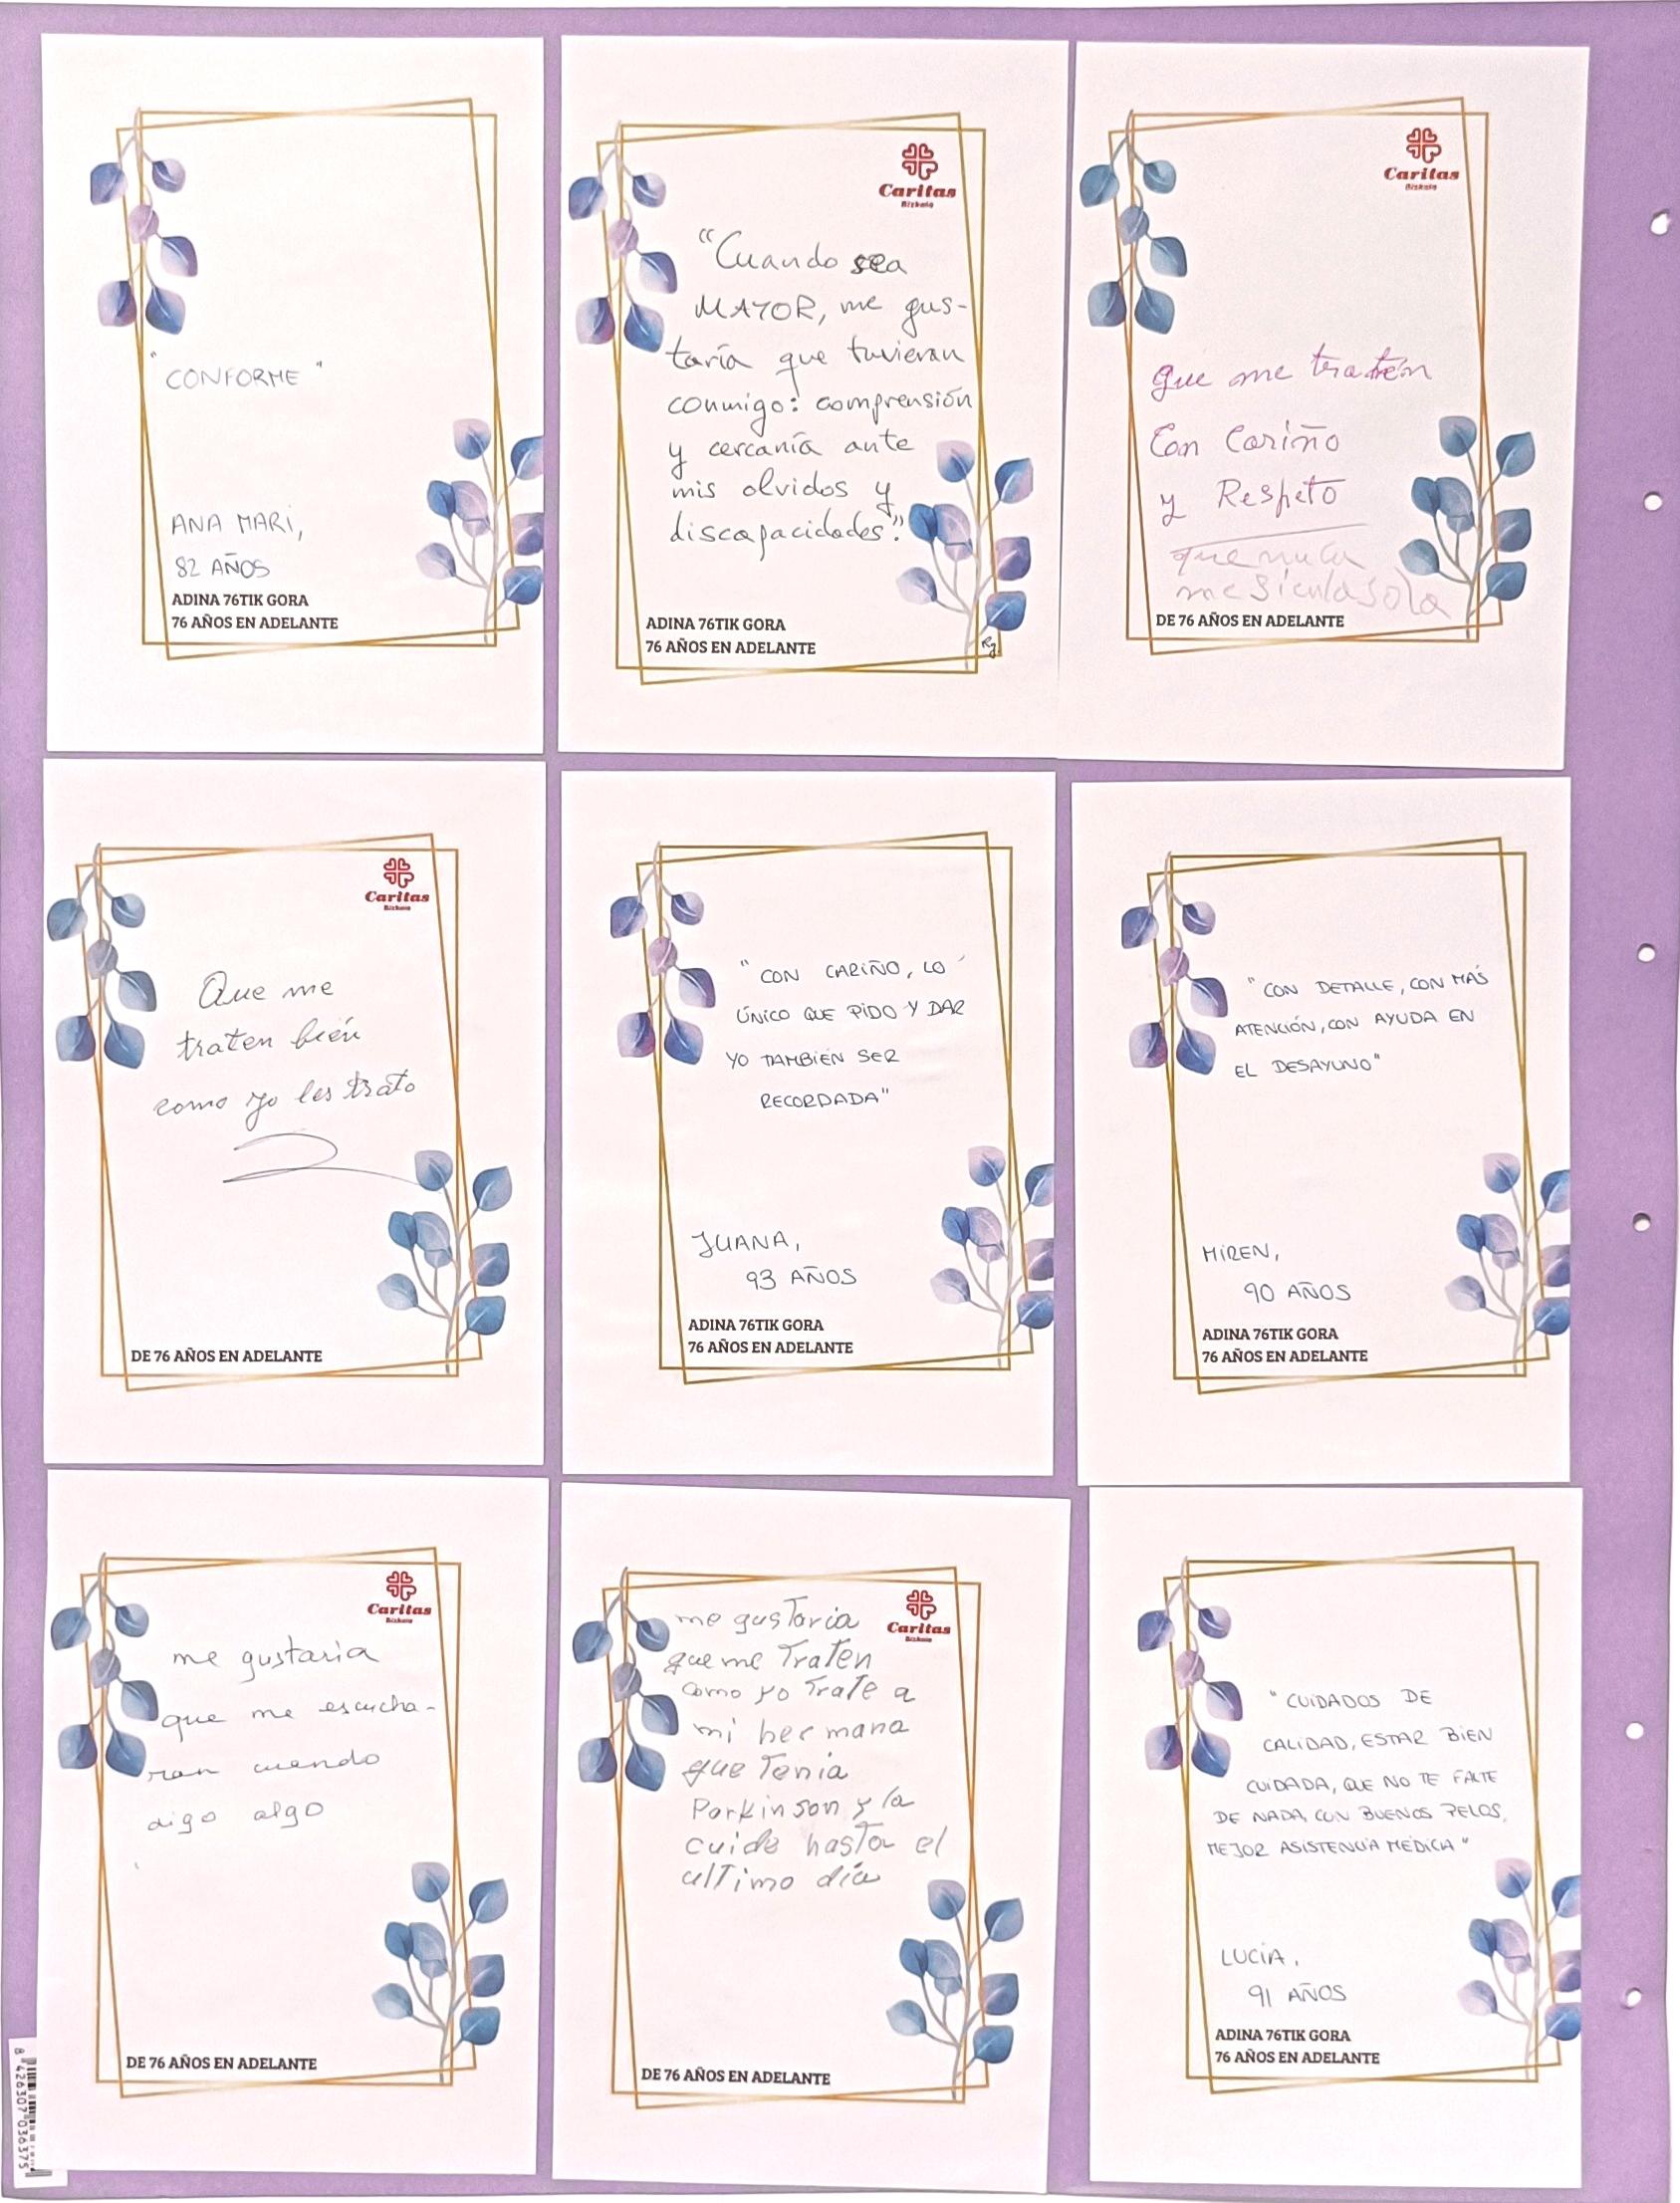 "CONFORME"
ANA MARI,
82 AÑOS
ADINA 76TIK GORA
76 AÑOS EN ADELANTE
Caritas
Bizkaia
"Cuando sea
MAYOR, me gus-
taría que tuvieran
conmigo: comprensión
y cercanía ante
mis olvidos y
discapacidades."
ADINA 76TIK GORA
76 AÑOS EN ADELANTE
Rg
Caritas
Bizkaia
que me traten
Con Cariño
y Respeto
que nuca
me sienta sola
DE 76 AÑOS EN ADELANTE
Caritas
Bizkaia
Que me
traten bién
como yo les trato
DE 76 AÑOS EN ADELANTE
"CON CARIÑO, LO
ÚNICO QUE PIDO Y DAR
YO TAMBIÉN SER
RECORDADA"
JUANA,
93 AÑOS
ADINA 76TIK GORA
76 AÑOS EN ADELANTE
"CON DETALLE, CON MÁS
ATENCIÓN, CON AYUDA EN
EL DESAYUNO"
MIREN,
90 AÑOS
ADINA 76TIK GORA
76 AÑOS EN ADELANTE
Caritas
Bizkaia
me gustaria
que me escucha-
ran cuando
digo algo
DE 76 AÑOS EN ADELANTE
Caritas
Bizkaia
me gustaria
que me Traten
como yo Trate a
mi hermana
que Tenia
Parkinson y la
cuide hasta el
ultimo día
DE 76 AÑOS EN ADELANTE
"CUIDADOS DE
CALIDAD, ESTAR BIEN
CUIDADA, QUE NO TE FALTE
DE NADA, CON BUENOS PELOS,
MEJOR ASISTENCIA MÉDICA"
LUCÍA,
91 AÑOS
ADINA 76TIK GORA
76 AÑOS EN ADELANTE
8 426307 036375